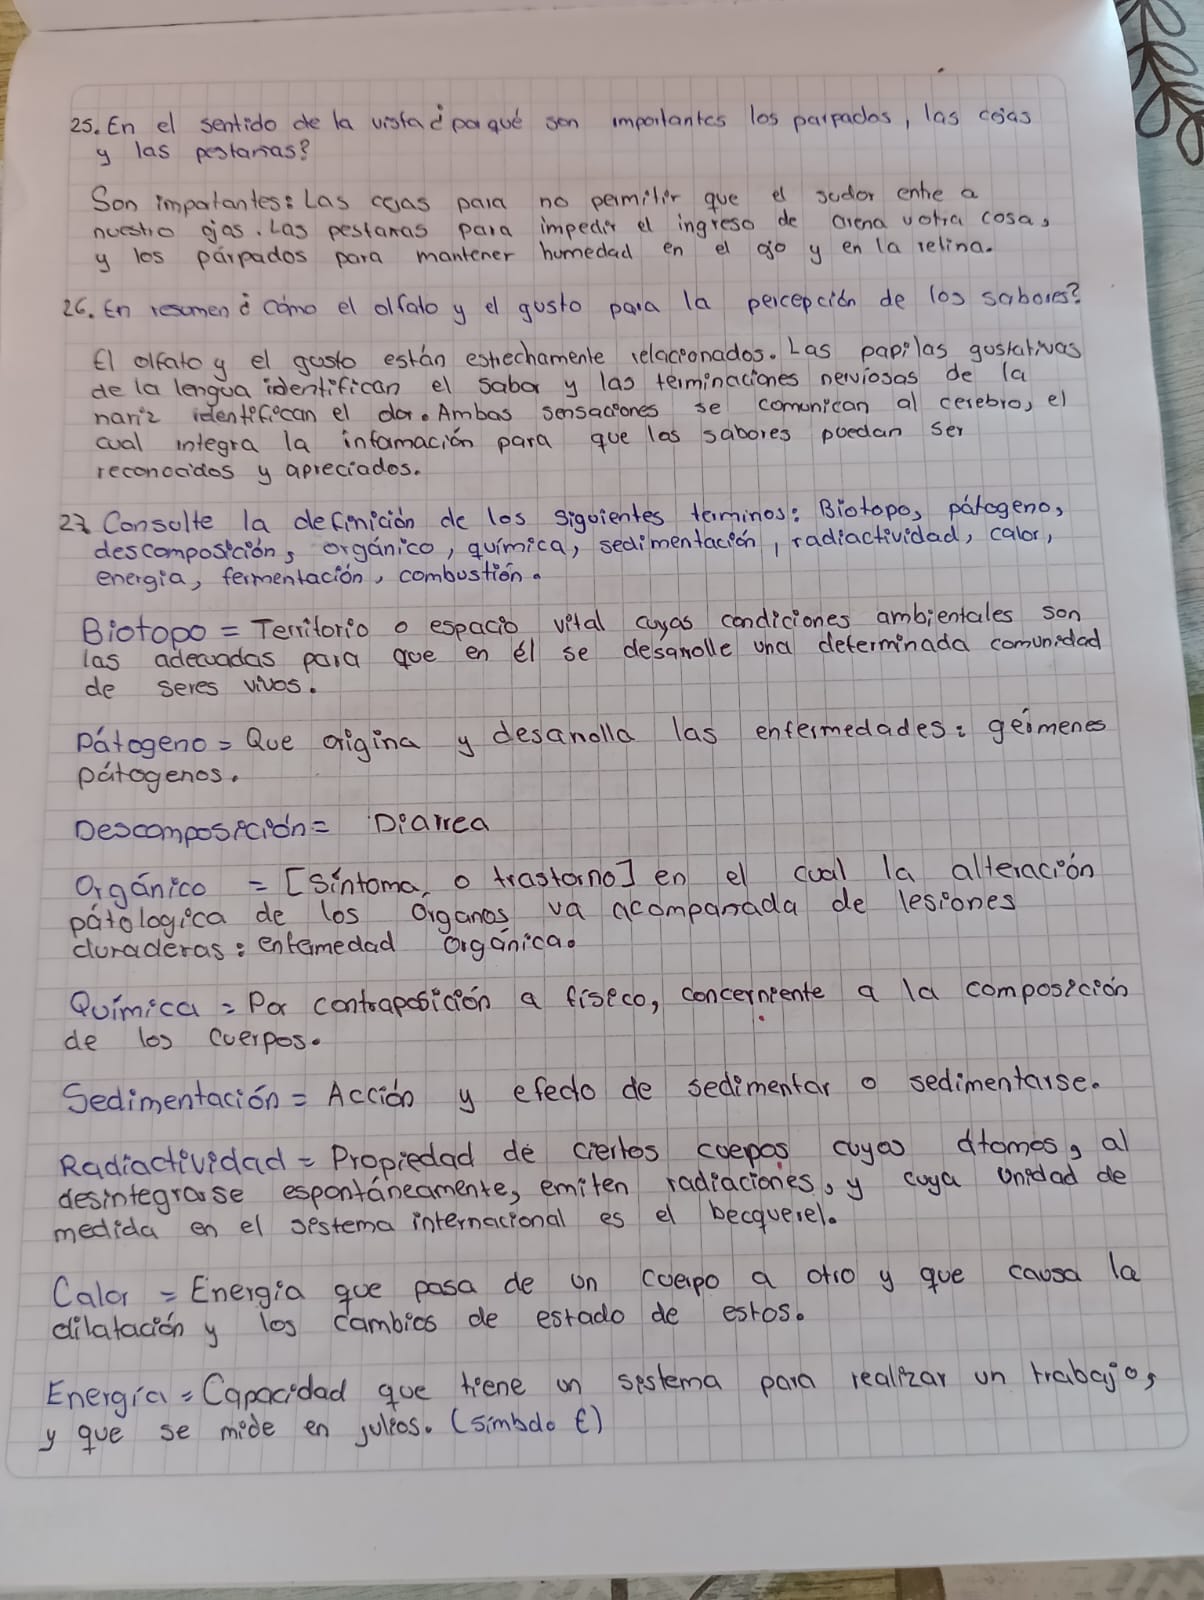 25. En el sentido de la vista ¿porqué son importantes los parpados, las cejas
y las pestañas?
Son importantes: Las cejas para no permitir que el sudor entre a
nuestro ojos. Las pestañas para impedir el ingreso de arena u otra cosa,
y los párpados para mantener humedad en el ojo y en la retina.
26. En resumen ¿cómo el olfato y el gusto para la percepción de los sabores?
El olfato y el gusto están estrechamente relacionados. Las papilas gustativas
de la lengua identifican el sabor y las terminaciones nerviosas de la
nariz identifican el olor. Ambas sensaciones se comunican al cerebro, el
cual integra la información para que los sabores puedan ser
reconocidos y apreciados.
27. Consulte la definición de los siguientes terminos: Biotopo, pátogeno,
descomposición, orgánico, química, sedimentación, radiactividad, calor,
energia, fermentación, combustión.
Biotopo = Territorio o espacio vital cuyas condiciones ambientales son
las adecuadas para que en él se desarrolle una determinada comunidad
de seres vivos.
Pátogeno = Que origina y desarrolla las enfermedades: gérmenes
pátogenos.
Descomposición = Diarrea
Orgánico = [Síntoma, o trastorno] en el cual la alteración
pátologica de los órganos va acompañada de lesiones
duraderas: enfermedad orgánica.
Química = Por contraposición a físico, concerniente a la composición
de los cuerpos.
Sedimentación = Acción y efecto de sedimentar o sedimentarse.
Radiactividad = Propiedad de ciertos cuepos cuyos átomos, al
desintegrarse espontáneamente, emiten radiaciones, y cuya unidad de
medida en el sistema internacional es el becquerel.
Calor = Energía que pasa de un cuerpo a otro y que causa la
dilatación y los cambios de estado de estos.
Energía = Capacidad que tiene un sistema para realizar un trabajo,
y que se mide en julios. (símbolo E)